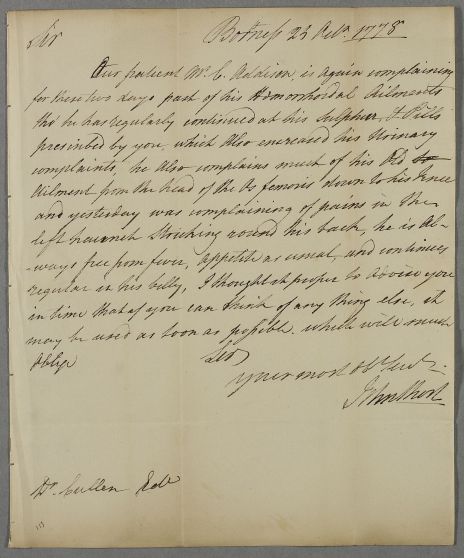 Sir Botness 23 Octr. 1778
Our patient Mr. C. Addison is again complaining
for these two days past of his Hemorrhoidal Ailments
tho' he has regularly continued at his Sulphur, & Pills
prescribed by you, which Also encreased his Urinary
complaints, he Also complains much of his Old
Ailment from the head of the Os femoris down to his Knee
and yesterday was complaining of pains in the
left haunch Striking round his back, he is Al-
-ways free from fever, appetite as usual, and continues
regular in his belly, I thought it proper to advise you
in time that if you can think of any thing else, it
may be used as soon as possible which will much
Oblige
Sir
Your most Obt. Servt.
John Short
Dr. Cullen Edr